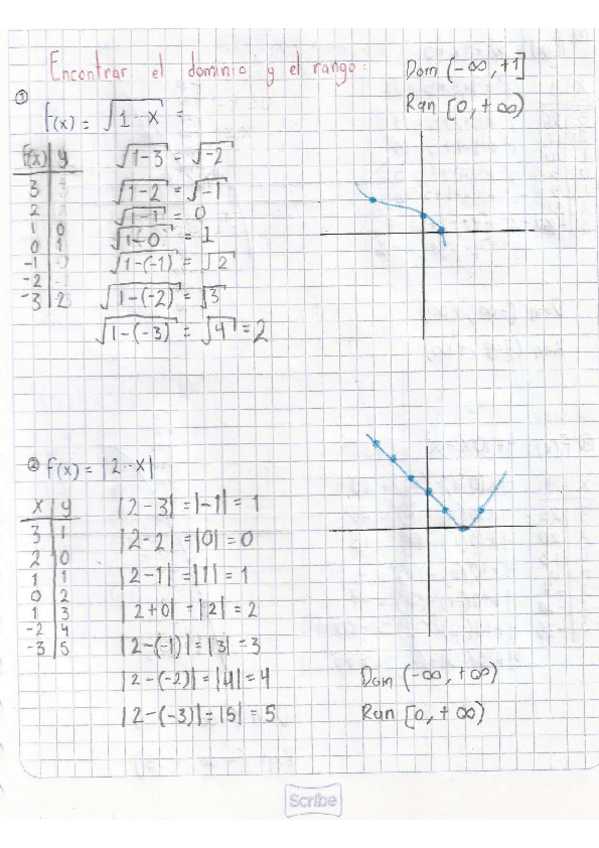 Encontrar el dominio y el rango:
Dom (-∞, +1]
Ran [0, +∞)
① f(x) = √1-x =
f(x) | y
3
2
1 | 0
0 | 1
-1
-2
-3 | 2
√1-3 = √-2
√1-2 = √-1
√1-1 = 0
√1-0 = 1
√1-(-1) = √2
√1-(-2) = √3
√1-(-3) = √4 = 2
② f(x) = |2-x|
x | y
3 | 1
2 | 0
1 | 1
0 | 2
1 | 3
-2 | 4
-3 | 5
|2-3| = |-1| = 1
|2-2| = |0| = 0
|2-1| = |1| = 1
|2+0| = |2| = 2
|2-(-1)| = |3| = 3
|2-(-2)| = |4| = 4
|2-(-3)| = |5| = 5
Dom (-∞, +∞)
Ran [0, +∞)
Scribe